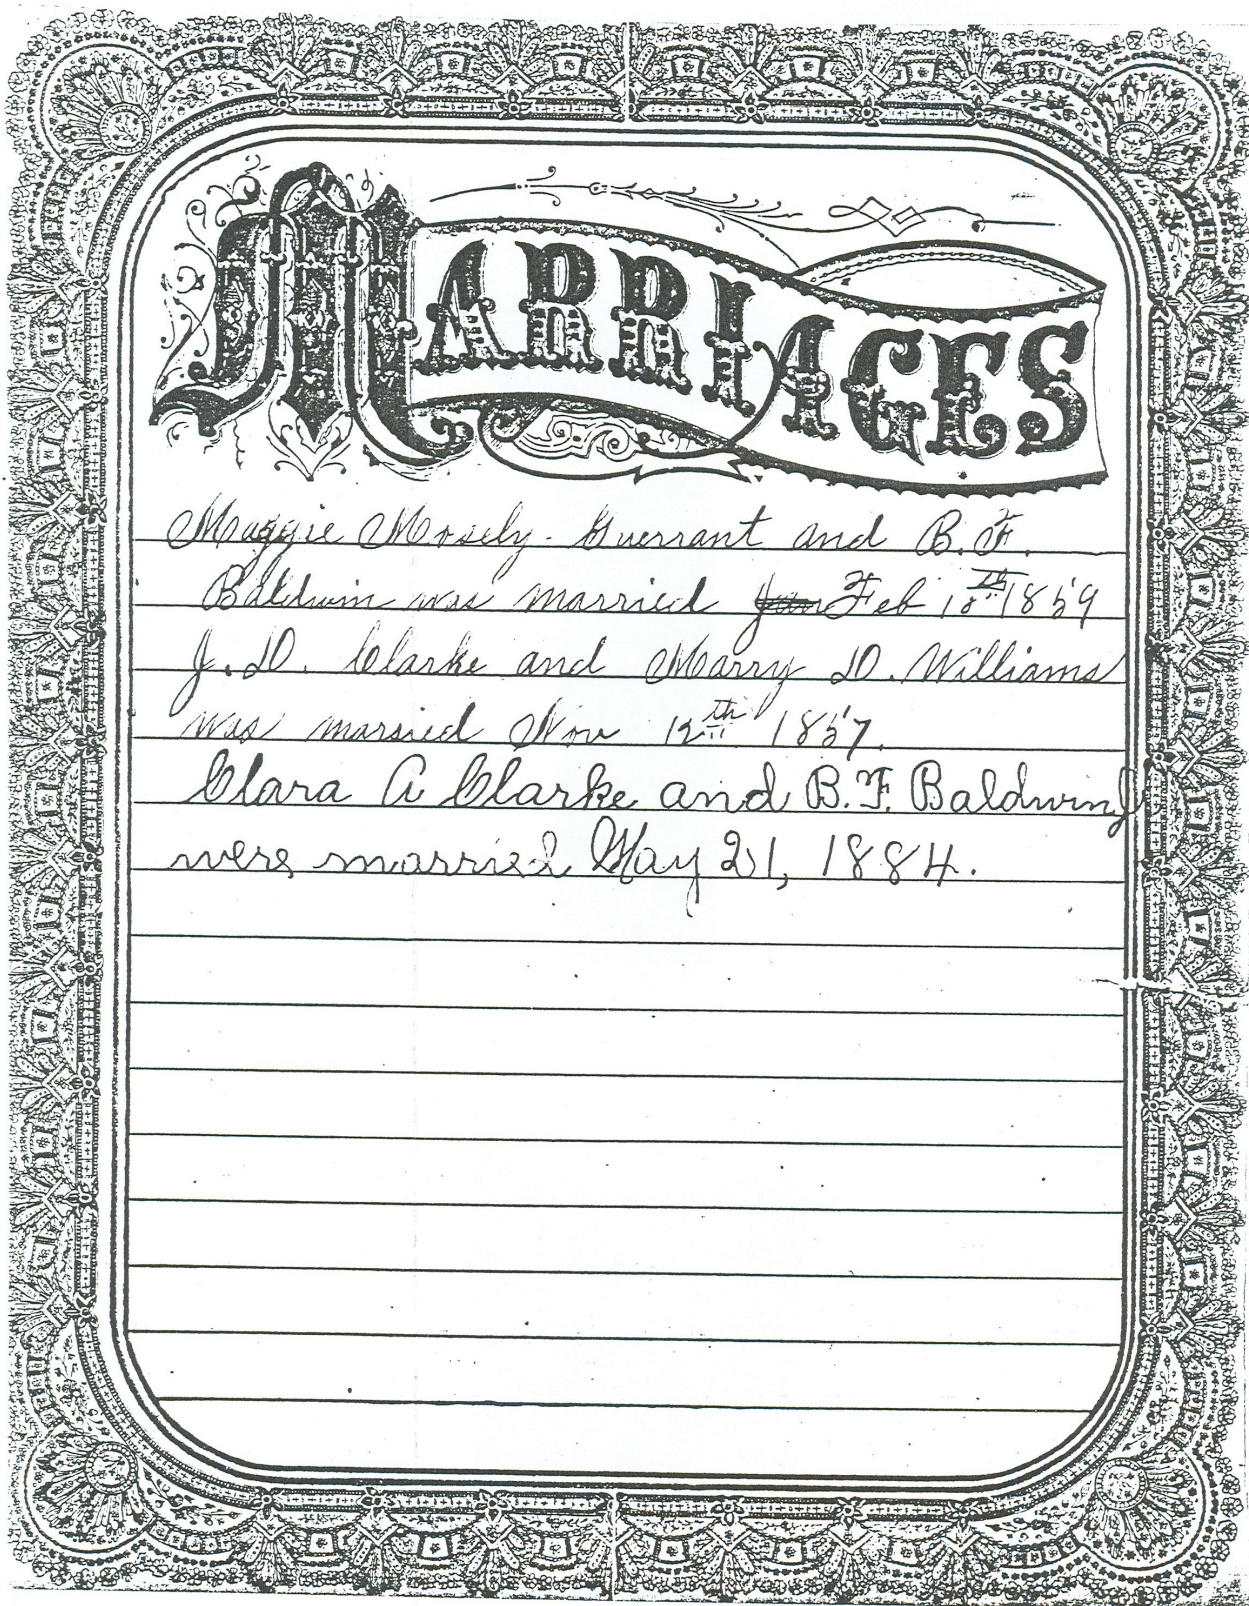 MARRIAGES
Maggie Mosely Guerrant and B. F.
Baldwin was married Jan Feb 18th 1859
J. D. Clarke and Marry D. Williams
was married Nov 12th 1857.
Clara A Clarke and B. F. Baldwin Jr
were married May 21, 1884.